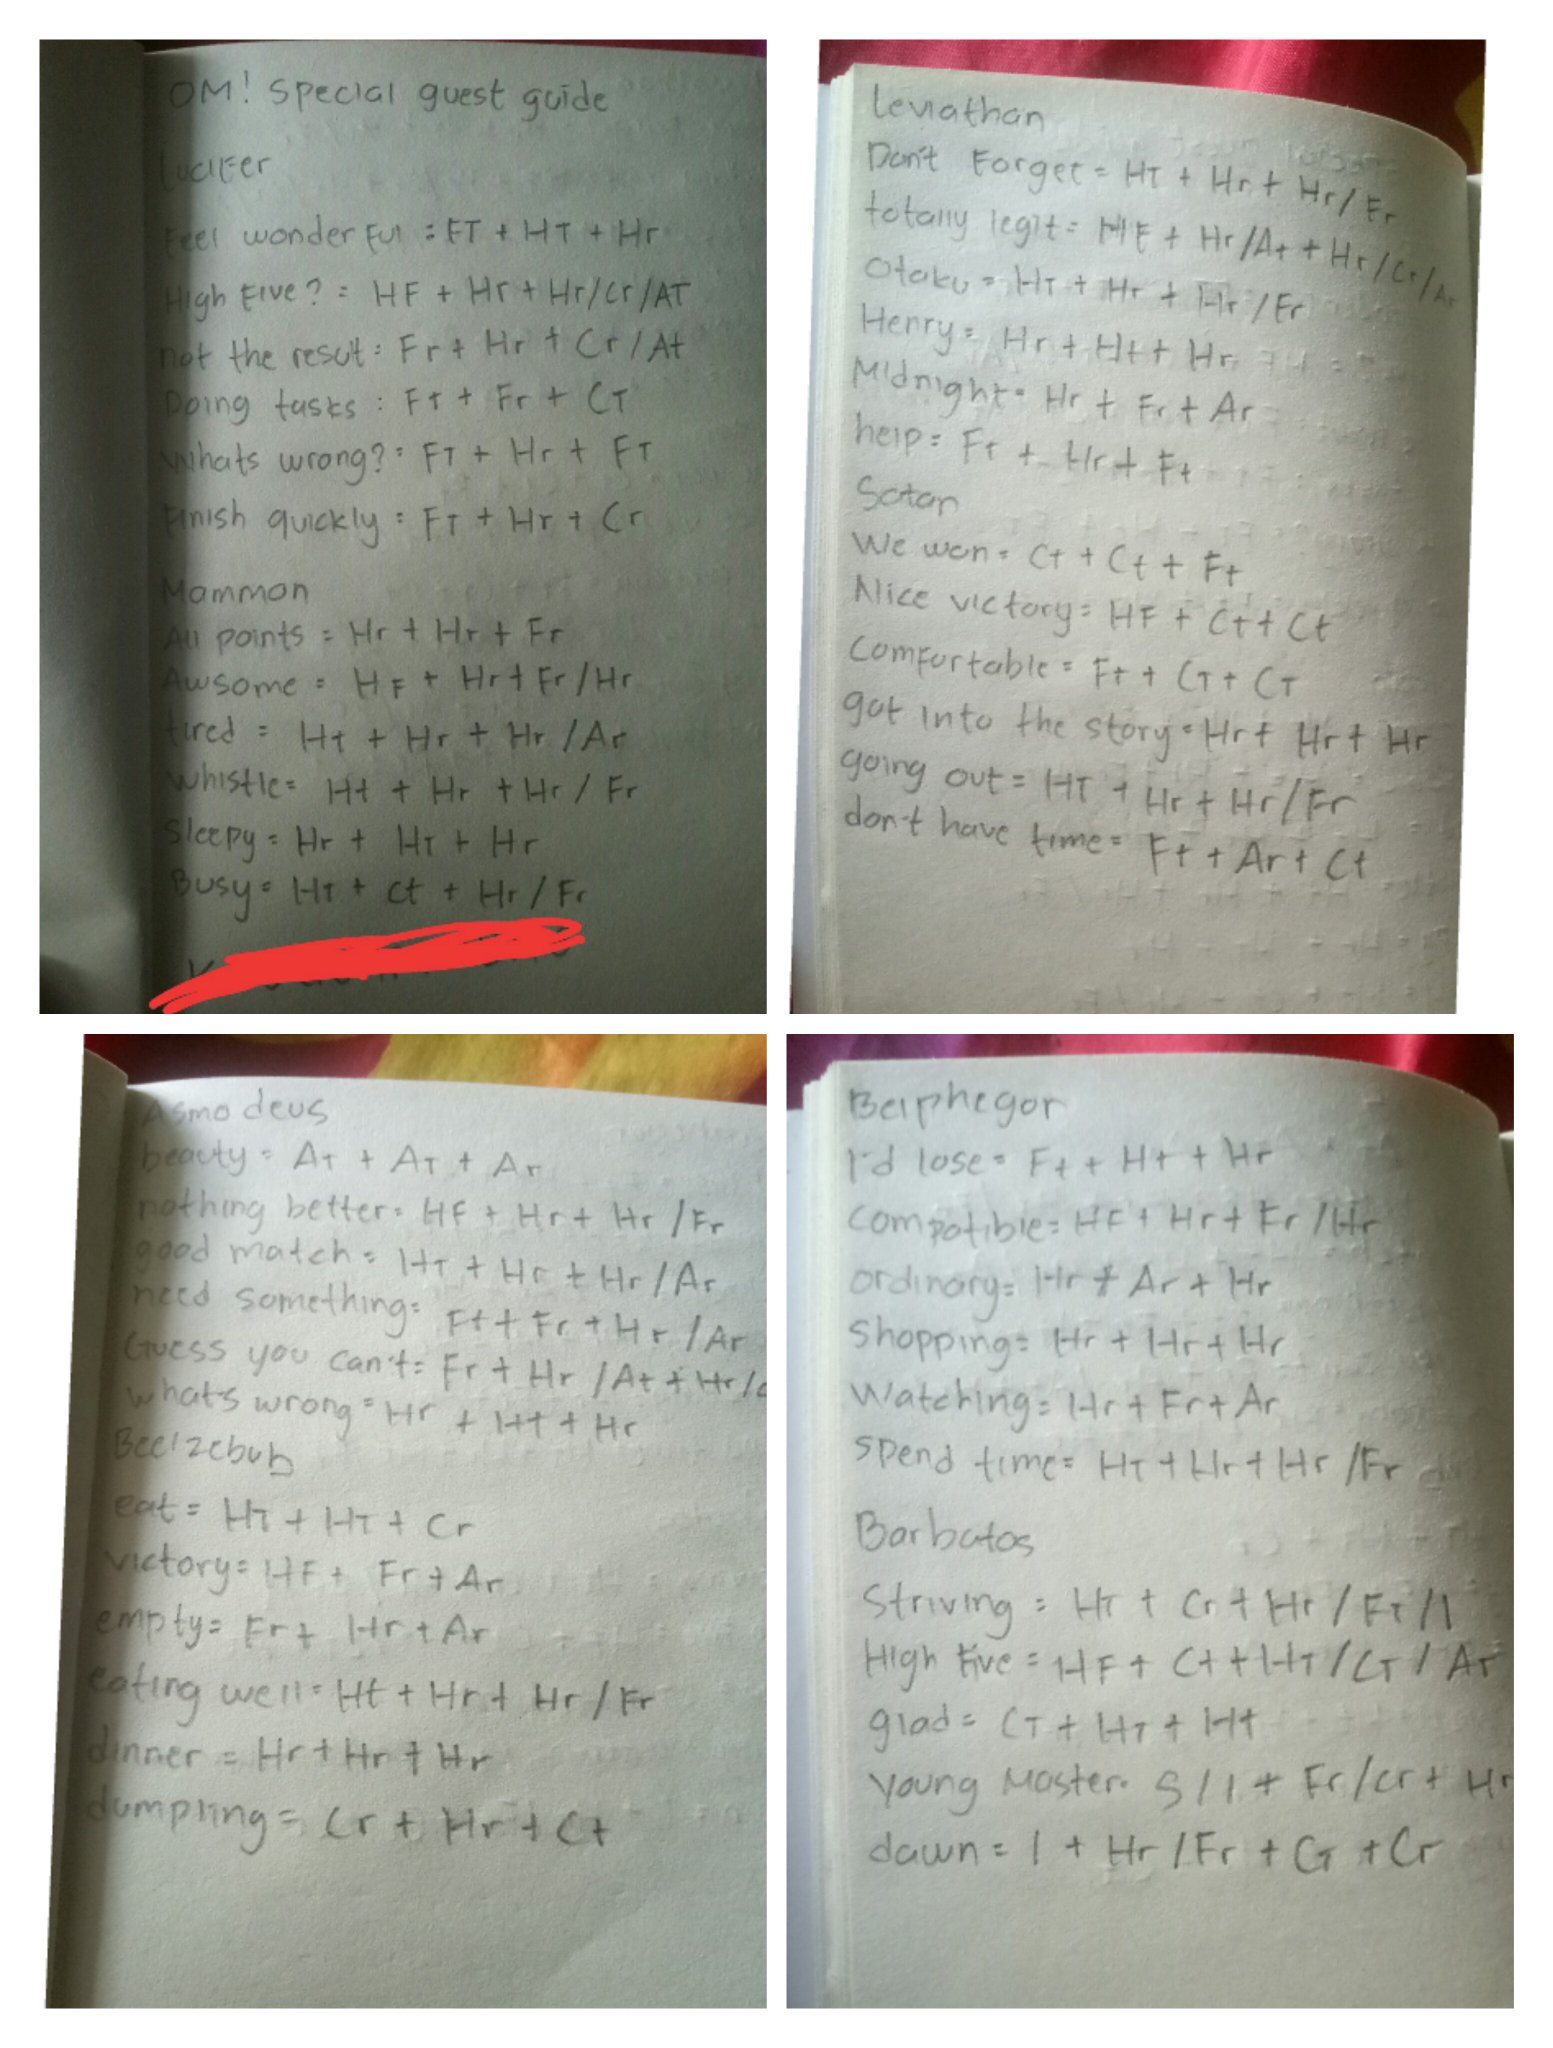 OM! Special guest guide
Lucifer
Feel wonderful : FT + HT + Hr
High Five? = HF + Hr + Hr/Cr/AT
not the result : Fr + Hr + Cr/At
Doing tasks : FT + Fr + CT
Whats wrong? : FT + Hr + FT
Finish quickly : FT + Hr + Cr
Mammon
All points = Hr + Hr + Fr
Awsome = HF + Hr + Fr/Hr
tired = HT + Hr + Hr/Ar
whistle = Ht + Hr + Hr/Fr
Sleepy = Hr + HT + Hr
Busy = HT + Ct + Hr/Fr
Leviathan
Don't Forget = HT + Hr + Hr/Fr
totally legit = HF + Hr/At + Hr/Cr/Ar
Otaku = HT + Hr + Hr/Fr
Henry = Hr + Ht + Hr
Midnight = Hr + Fr + Ar
help = Ft + Hr + Ft
Satan
We won = Ct + Ct + Ft
Nice victory = HF + Ct + Ct
Comfortable = Ft + CT + CT
got into the story = Hr + Hr + Hr
going out = HT + Hr + Hr/Fr
don't have time = Ft + Ar + Ct
Asmodeus
beauty = AT + AT + Ar
nothing better = HF + Hr + Hr/Fr
good match = HT + Hr + Hr/Ar
need something = Ft + Fr + Hr/Ar
Guess you can't = Fr + Hr/At + Hr/
whats wrong = Hr + Ht + Hr
Beelzebub
eat = HT + HT + Cr
victory = HF + Fr + Ar
empty = Fr + Hr + Ar
eating well = Ht + Hr + Hr/Fr
dinner = Hr + Hr + Hr
dumpling = Cr + Hr + Ct
Belphegor
I'd lose = Ft + Ht + Hr
Compatible = HF + Hr + Fr/Hr
ordinary = Hr + Ar + Hr
Shopping = Hr + Hr + Hr
Watching = Hr + Fr + Ar
spend time = HT + Hr + Hr/Fr
Barbatos
Striving = HT + Cr + Hr/FT/1
High Five = HF + Ct + HT/CT/Ar
glad = CT + HT + Ht
Young Master = S/1 + Fr/Cr + Hr
dawn = 1 + Hr/Fr + CT + Cr